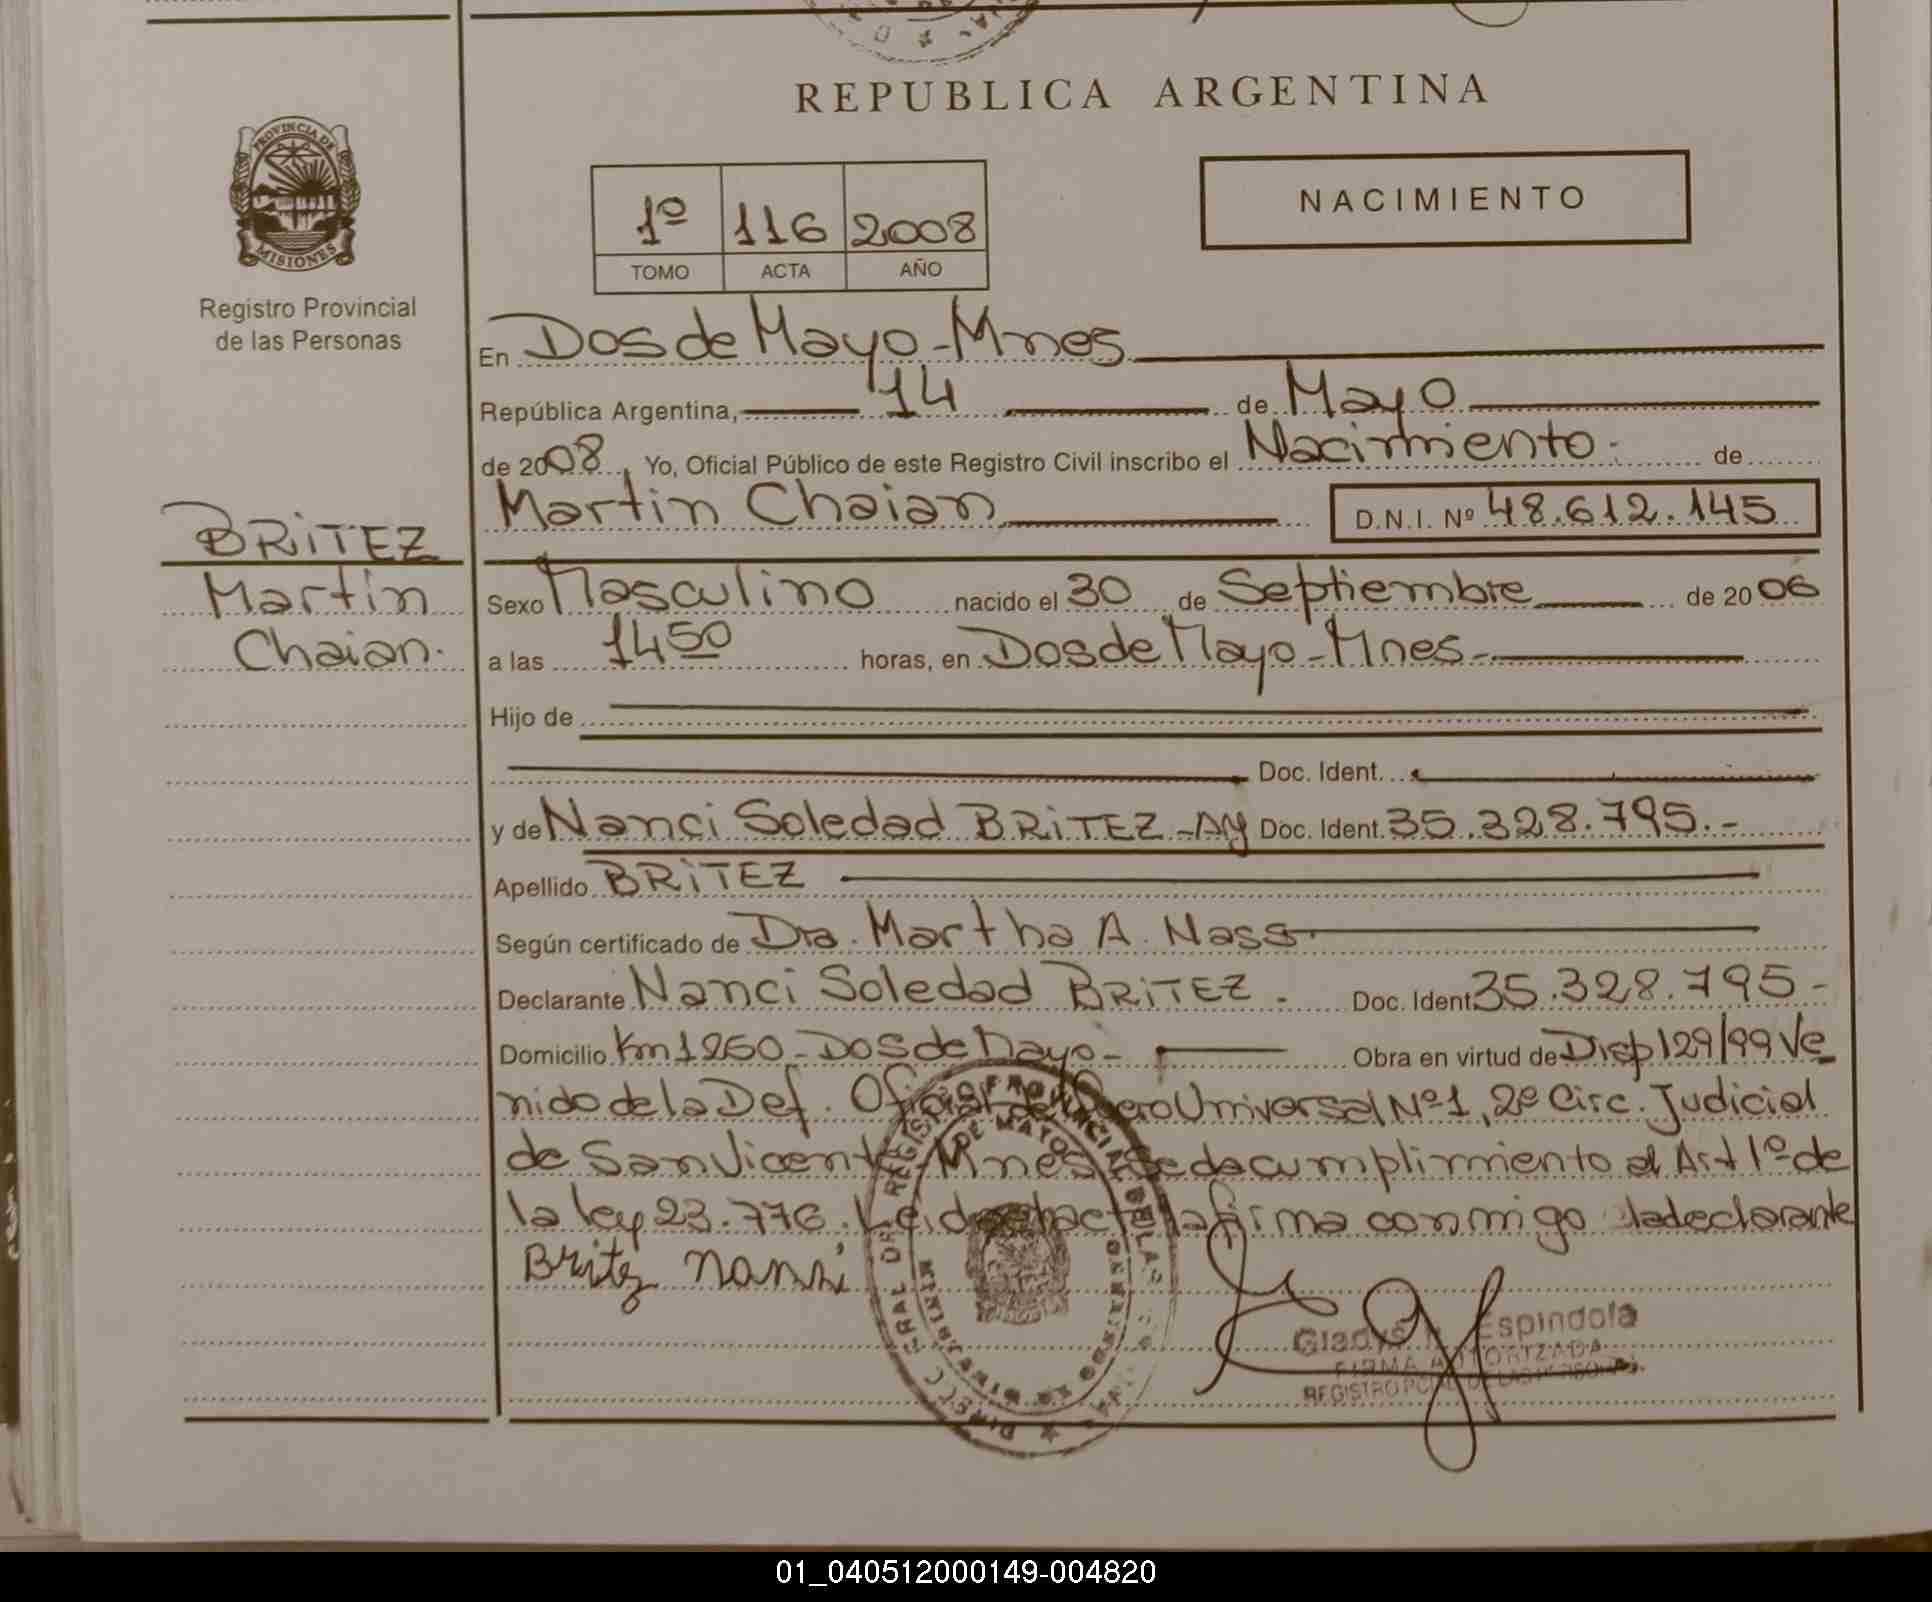 REPUBLICA ARGENTINA
PROVINCIA DE
MISIONES
Registro Provincial
de las Personas
1º 116 2008
TOMO ACTA AÑO
NACIMIENTO
En Dos de Mayo - Mnes
República Argentina, 14 de Mayo
de 2008, Yo, Oficial Público de este Registro Civil inscribo el Nacimiento. de
Martin Chaian D.N.I. Nº 48.612.145
BRiTEZ
Martin
Chaian.
Sexo Masculino nacido el 30 de Septiembre de 2006
a las 1450 horas, en Dos de Mayo - Mnes -
Hijo de
Doc. Ident.
y de Nanci Soledad BRiTEZ - Ay Doc. Ident. 35.328.795.-
Apellido BRiTEZ
Según certificado de Dra. Martha A. Nass.
Declarante Nanci Soledad BRiTEZ. Doc. Ident. 35.328.795-
Domicilio Km 1260 - Dos de Mayo - Obra en virtud de Disp 129/99 Ve
nido de la Def. Oficial de Fuero Universal Nº 1, 2º Circ. Judicial
de San Vicente Mnes. Se da cumplimiento al Art 1º de
la ley 23.776. Leida el acta la firma conmigo la declarante
Britez Nanci
Gladys Espindola
FIRMA AUTORIZADA
REGISTRO PCIAL DE LAS PERSONAS
01_040512000149-004820